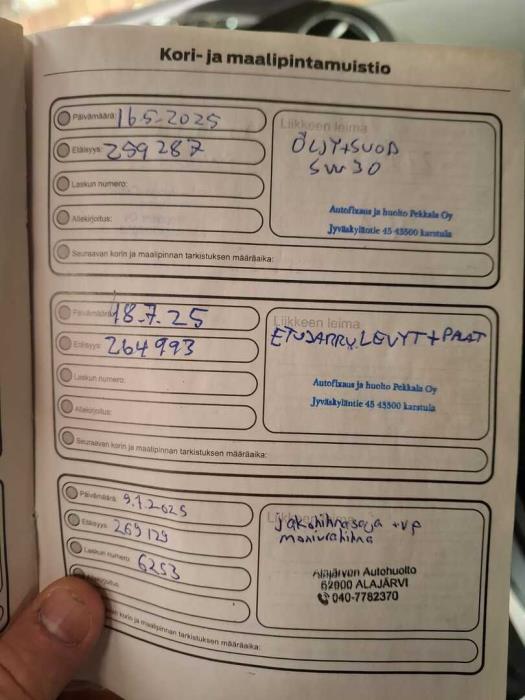 Kori- ja maalipintamuistio
Päivämäärä: 16.5-2025
Etäisyys: 259287
Laskun numero:
Allekirjoitus:
Liikkeen leima
ÖLJYT+SUOD
5W30
Autofixaus ja huolto Pekkala Oy
Jyväskyläntie 45 43500 karstula
Seuraavan korin ja maalipinnan tarkistuksen määräaika:
Päivämäärä: 18.7.25
Etäisyys: 264993
Laskun numero:
Allekirjoitus:
Liikkeen leima
ETUJARRULEVYT+PALAT
Autofixaus ja huolto Pekkala Oy
Jyväskyläntie 45 43500 karstula
Seuraavan korin ja maalipinnan tarkistuksen määräaika:
Päivämäärä: 9.1.2025
Etäisyys: 269129
Laskun numero: 6253
Allekirjoitus
jakohihnasarja +vp
moniurahihna
Alajärven Autohuolto
62900 ALAJÄRVI
040-7782370
korin ja maalipinnan tarkistuksen määräaika: